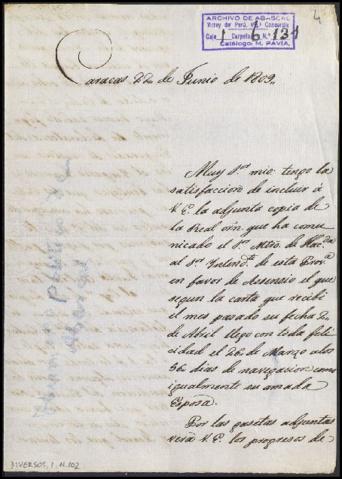 4
ARCHIVO DE ABASCAL
Virrey del Perú, M. de Concordia
Caja 1 Carpeta 6 N.º 134
Catálogo: M. PAVIA.
Caracas 22 de Junio de 1809.
Muy S.or mio: tengo la
satisfaccion de incluir á
V.E. la adjunta copia de
la Real orn. que ha comu-
nicado el S.or Mtro. de Haz.da
al S.or Intend.te de esta Prov.a
en favor de Assensio el que
segun la carta que recibi
el mes pasado su fecha 20
de Abril llego con toda feli-
cidad el 26 de Marzo a los
56 dias de navegacion como
igualmente su amada
Esposa.
Por las gasetas adjuntas
verá V.E. los progresos de
DIVERSOS, 1, N.102